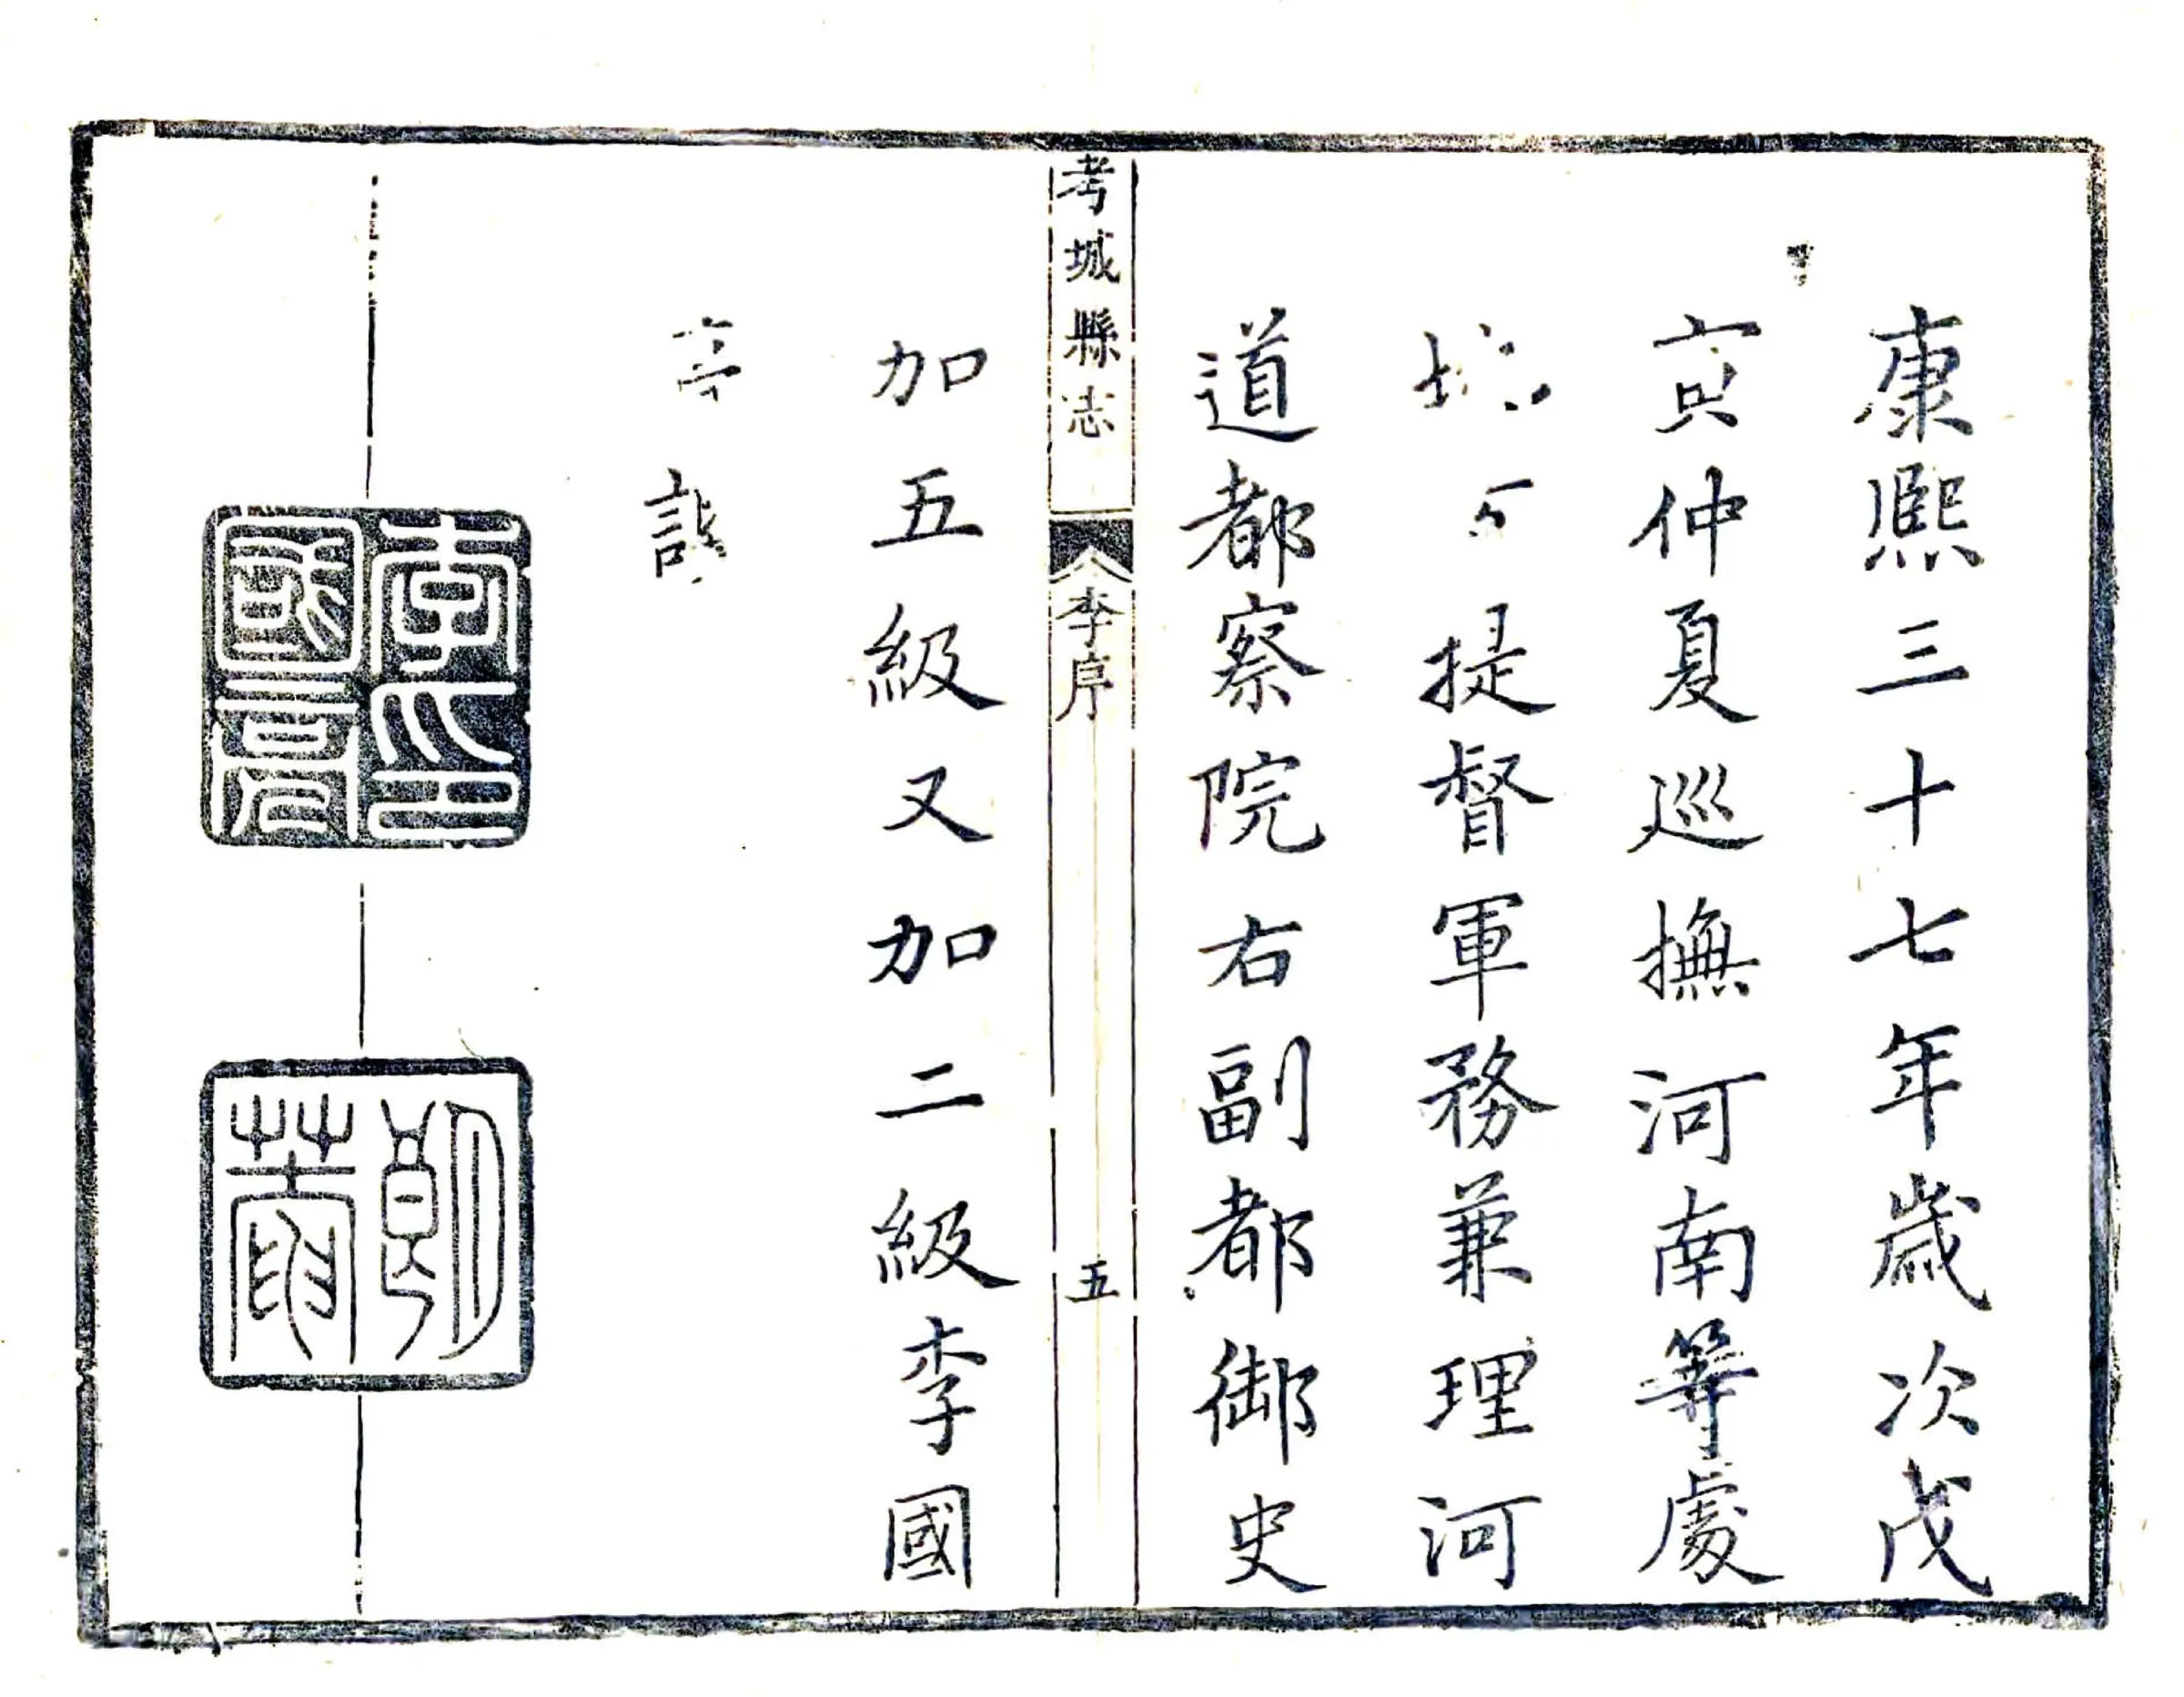 康熙三十七年歲次戊
寅仲夏巡撫河南等處
提督軍務兼理河
道都察院右副都御史
考城縣志
李序
五
加五級又加二級李國
李印國亮